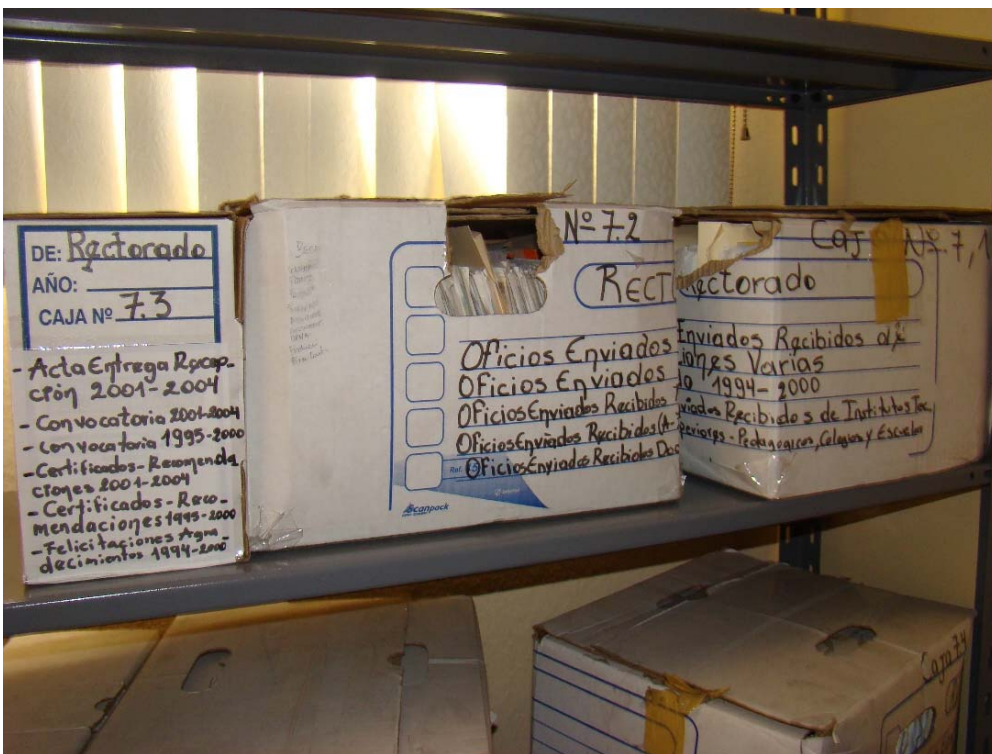 DE: Rectorado
AÑO:
CAJA Nº 7.3
- Acta Entrega Recep-
ción 2001-2004
- Convocatoria 2001-2004
- Convocatoria 1995-2000
- Certificados - Recomenda
ciones 2001-2004
- Certificados - Reco-
mendaciones 1995-2000
- Felicitaciones Agra-
decimientos 1994-2000
Nº 7.2
RECT
Oficios Enviados
Oficios Enviados
Oficios Enviados Recibidos
Oficios Enviados Recibidos (A-
Oficios Enviados Recibidos Doc
Scanpack
Caj Nº 7,1
Rectorado
Enviados Recibidos de
iones Varias
1994-2000
viados Recibidos de Institutos Tec.
periores - Pedagogicos, Colegios y Escuela
Caja 7.4